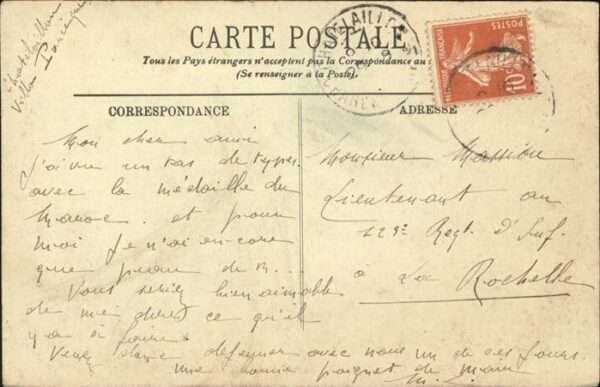 Chatelaillon
Villa
CARTE POSTALE
Tous les Pays étrangers n'acceptent pas la Correspondance au
(Se renseigner à la Poste).
POSTES
10c
CORRESPONDANCE
ADRESSE
Mon cher ami
j'ai vu un tas de types
avec la médaille du
Maroc. et pour
moi je n'ai encore
que peau de z...
Vous seriez bien aimable
de me dire ce qu'il
y a à faire
Venez donc déjeuner avec nous un de ces jours.
une bonne poignet de main
Monsieur Massiou
Lieutenant au
123e Regt. d'Inf.
à La Rochelle